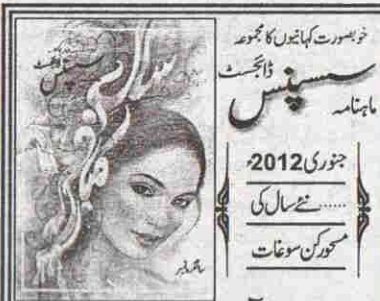 خوبصورت کہانیوں کا مجموعہ
ماہنامہ سسپنس ڈائجسٹ
جنوری 2012ء
...... نئے سال کی
مسحور کن سوغات
سسپنس ڈائجسٹ
سالگرہ نمبر